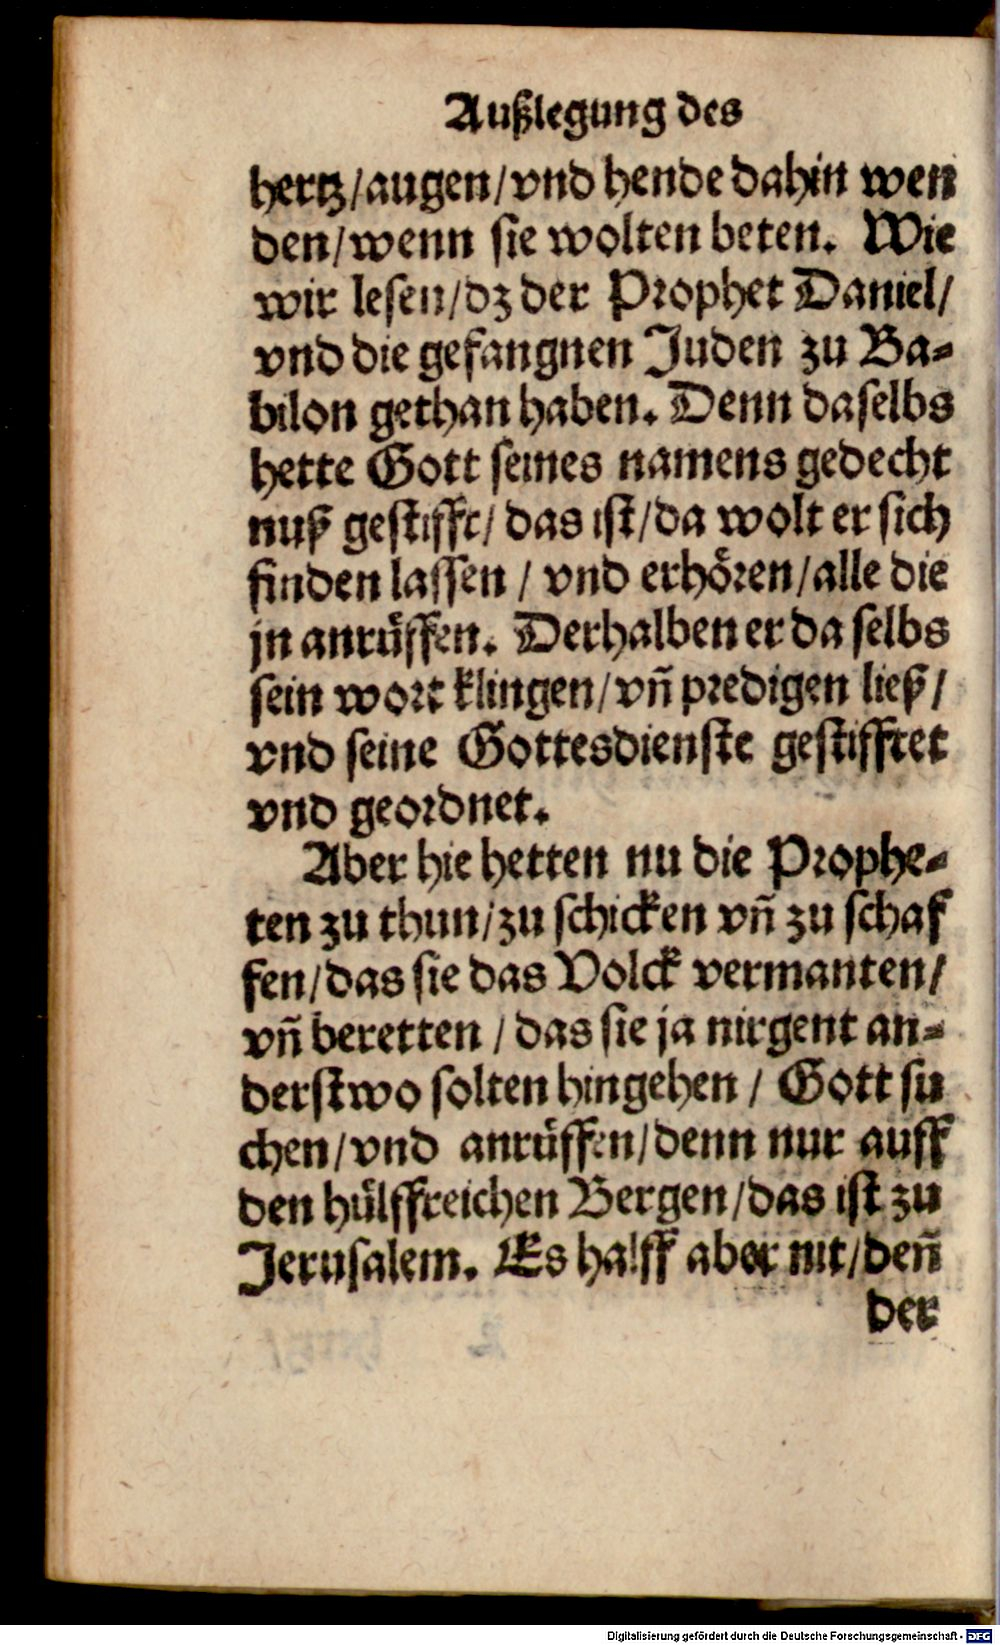 Außlegung des
hertz/augen/vnd hende dahin wen
den/wenn sie wolten beten. Wie
wir lesen/dz der Prophet Daniel/
vnd die gefangnen Juden zu Ba=
bilon gethan haben. Denn daselbs
hette Gott seines namens gedecht
nuß gestifft/ das ist/da wolt er sich
finden lassen / vnd erhören/alle die
jn anrüffen. Derhalben er da selbs
sein wort klingen/vñ predigen ließ/
vnd seine Gottesdienste gestifftet
vnd geordnet.
Aber hie hetten nu die Prophe=
ten zu thun/zu schicken vñ zu schaf
fen/das sie das Volck vermanten/
vñ beretten / das sie ja nirgent an=
derstwo solten hingehen / Gott su
chen/vnd anrüffen/denn nur auff
den hülffreichen Bergen/das ist zu
Jerusalem. Es halff aber nit/deñ
der
Digitalisierung gefördert durch die Deutsche Forschungsgemeinschaft - DFG